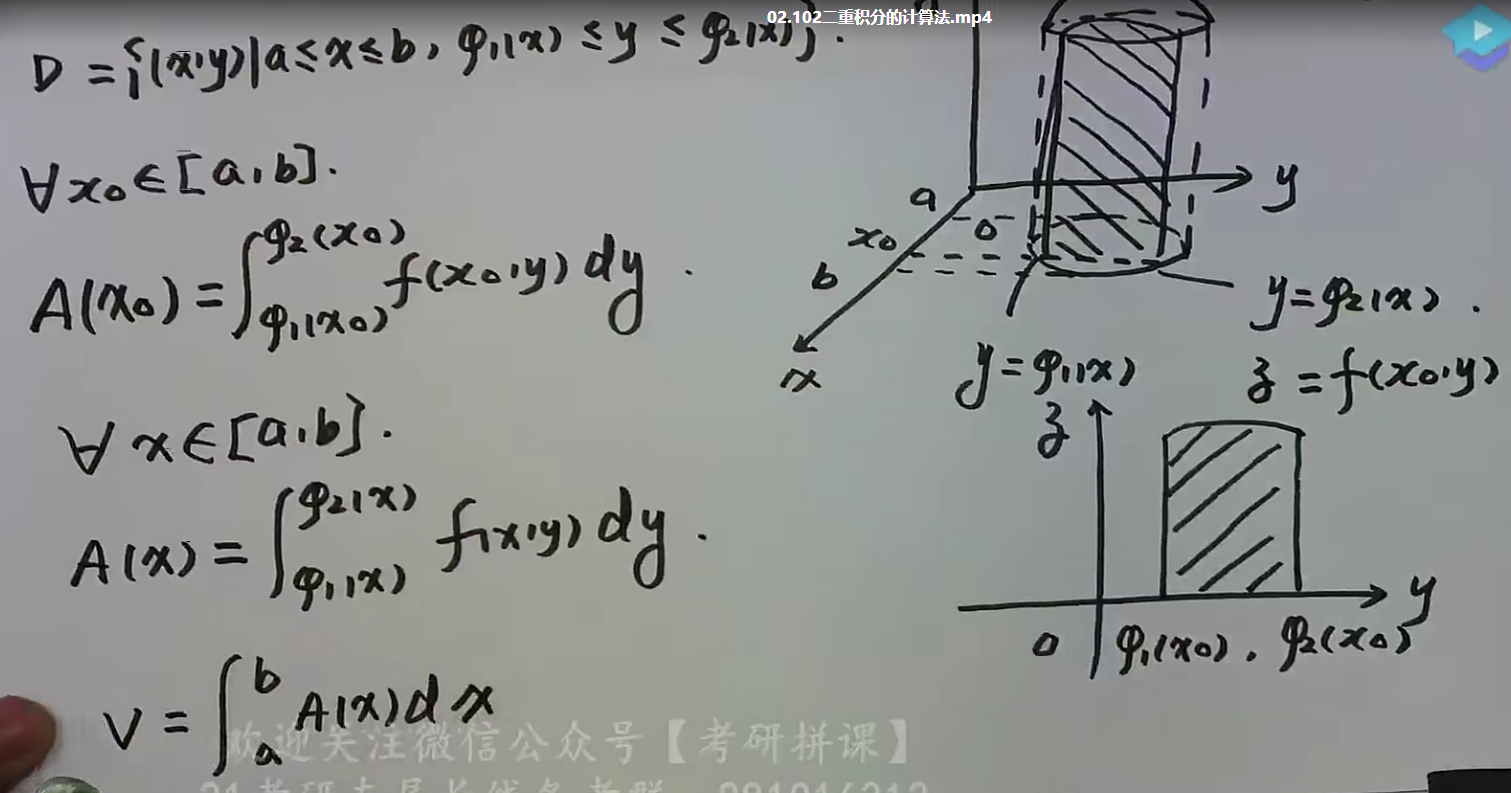 02.102二重积分的计算法.mp4
D = {(x,y)|a≤x≤b, φ₁(x) ≤ y ≤ φ₂(x)}.
∀x₀∈[a,b].
A(x₀) = ∫_{φ₁(x₀)}^{φ₂(x₀)} f(x₀,y) dy.
∀ x∈[a,b].
A(x) = ∫_{φ₁(x)}^{φ₂(x)} f(x,y) dy.
V = ∫_a^b A(x)dx
y
a
0
x₀
b
x
y=φ₂(x).
y=φ₁(x)
z=f(x₀,y)
z
y
0
φ₁(x₀). φ₂(x₀)
欢迎关注微信公众号【考研拼课】